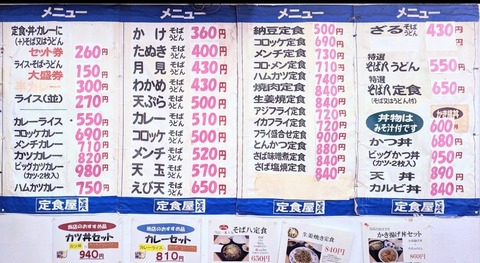 メニュー
定食・丼・カレーに
(+)そば又はうどん
セット券 260円
ライス・そば・うどん
大盛券 150円
300円
ライス(並) 270円
カレーライス 550円
コロッケカレー 690円
メンチカレー 710円
カツカレー 820円
ビッグカツカレー
(カツ・2枚) 980円
ハムカツカレー 750円
定食屋
メニュー
かけ そばうどん 360円
たぬき そばうどん 400円
月見 そばうどん 430円
わかめ そばうどん 430円
天ぷら そばうどん 500円
カレー そばうどん 510円
コロッケ そばうどん 500円
メンチ そばうどん 520円
天玉 そばうどん 570円
えび天 そばうどん 650円
定食屋
メニュー
納豆定食 500円
コロッケ定食 690円
メンチ定食 730円
コロ・メン定食 710円
ハムカツ定食 740円
焼肉定食 840円
生姜焼定食 840円
アジフライ定食 720円
イカフライ定食 720円
フライ盛合せ定食 900円
とんかつ定食 880円
さば味噌煮定食 840円
さば塩焼定食 840円
定食屋
メニュー
ざる そばうどん 430円
特選
そば八うどん 550円
特選
そば八定食 650円
(そば又はうどん付)
丼物は
みそ汁付です
600円
かつ丼 680円
ビッグかつ丼
(カツ・2枚) 950円
天丼 890円
カルビ丼 840円
定食屋
当店のおすすめ品
カツ丼セット
940円
当店のおすすめ品
カレーセット
カレーライス
810円
そば八定食
650円
生姜焼き定食
840円
かき揚げ丼セット